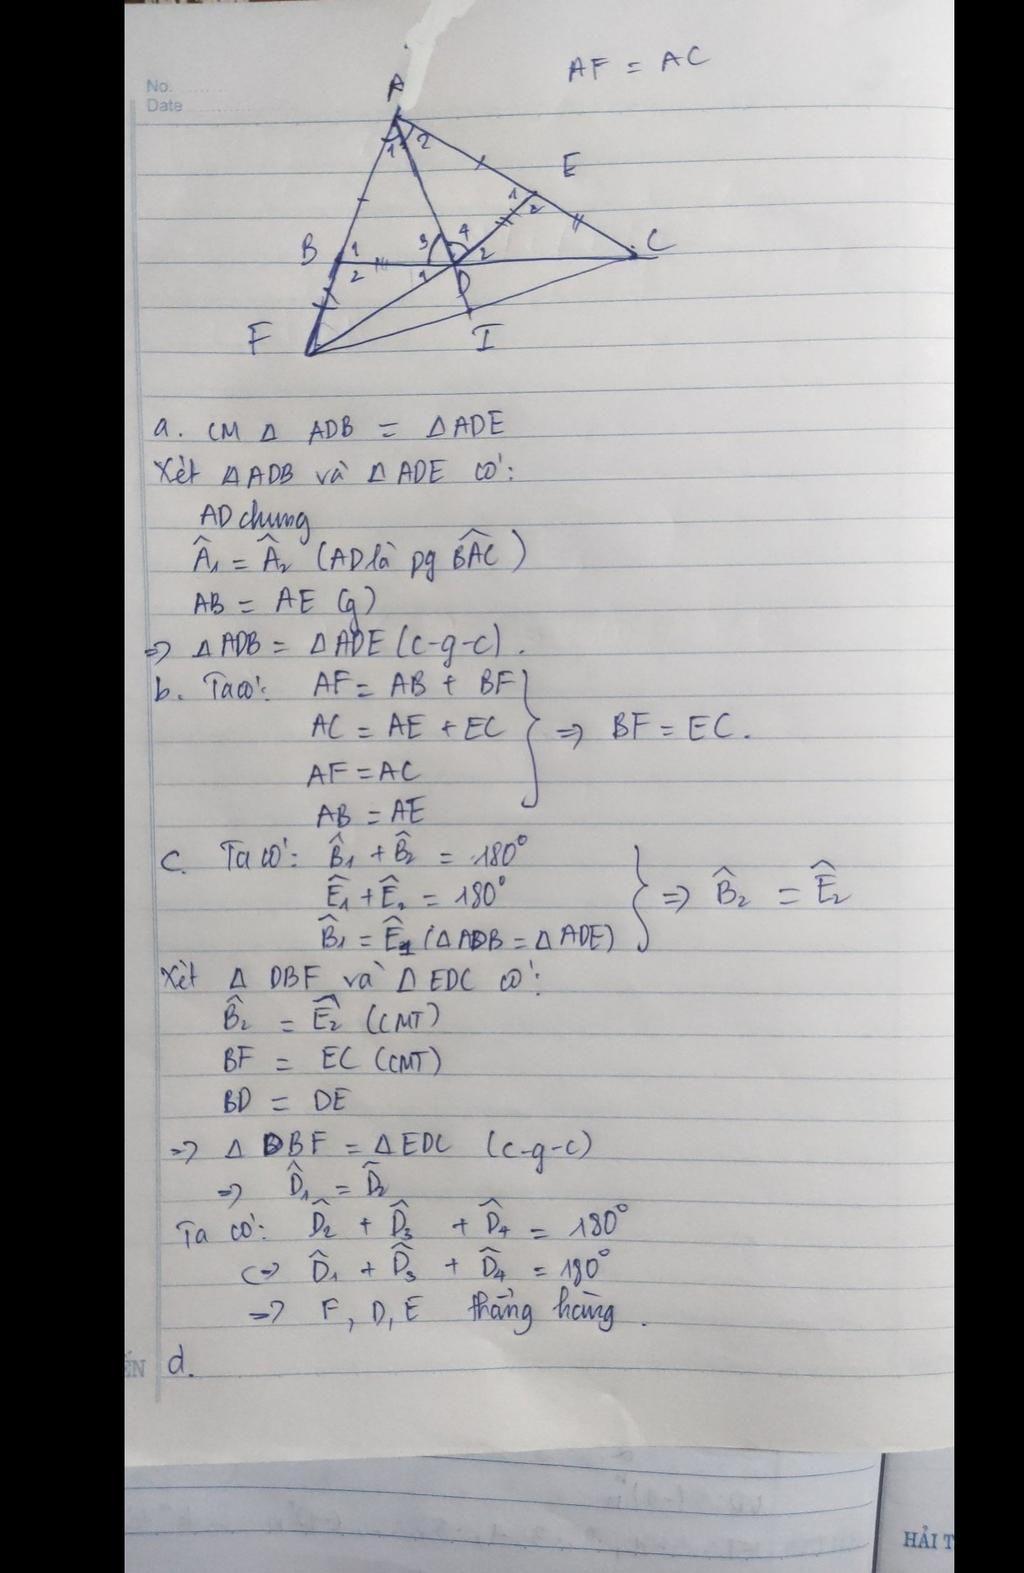 No.
Date
AF = AC
A
1 2
E
1 2
B 1 2
3 4
1 2
D
C
F
I
a. CM Δ ADB = ΔADE
Xét ΔADB và ΔADE có:
AD chung
Â₁ = Â₂ (AD là pg BÂC)
AB = AE (g)
=> ΔADB = ΔADE (c-g-c).
b. Ta có: AF = AB + BF
AC = AE + EC => BF = EC.
AF = AC
AB = AE
c. Ta có: B̂₁ + B̂₂ = 180°
Ê₁ + Ê₂ = 180° => B̂₂ = Ê₂
B̂₁ = Ê₁ (ΔADB = ΔADE)
Xét Δ DBF và ΔEDC có:
B̂₂ = Ê₂ (CMT)
BF = EC (CMT)
BD = DE
=> Δ DBF = ΔEDC (c-g-c)
=> D̂₁ = D̂₂
Ta có: D̂₂ + D̂₃ + D̂₄ = 180°
<=> D̂₁ + D̂₃ + D̂₄ = 180°
=> F, D, E thẳng hàng.
ẾN d.
HẢI T